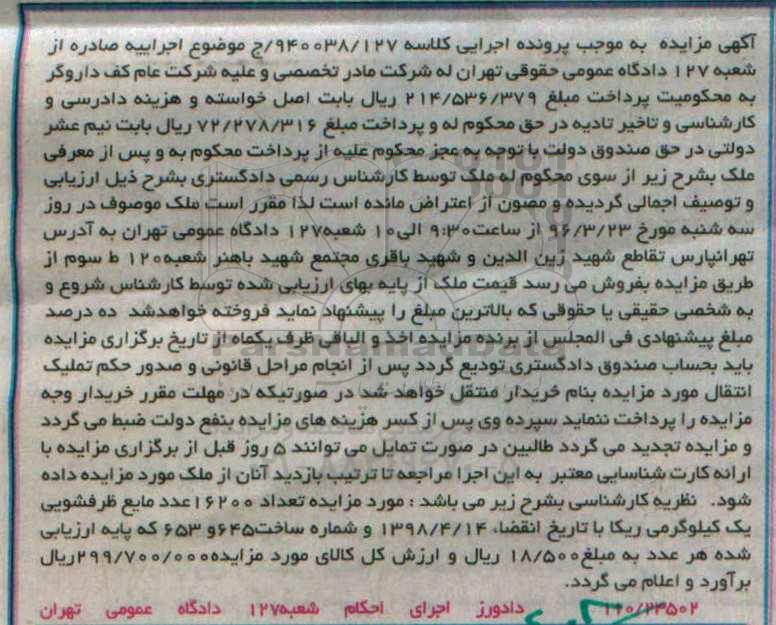 آگهی مزایده به موجب پرونده اجرایی کلاسه ۹۴۰۰۳۸/۱۲۷/ج موضوع اجراییه صادره از
شعبه ۱۲۷ دادگاه عمومی حقوقی تهران له شرکت مادر تخصصی و علیه شرکت عام کف داروگر
به محکومیت پرداخت مبلغ ۲۱۴/۵۳۶/۳۷۹ ریال بابت اصل خواسته و هزینه دادرسی و
کارشناسی و تاخیر تادیه در حق محکوم له و پرداخت مبلغ ۷۲/۲۷۸/۳۱۶ ریال بابت نیم عشر
دولتی در حق صندوق دولت با توجه به عجز محکوم علیه از پرداخت محکوم به و پس از معرفی
ملک بشرح زیر از سوی محکوم له ملک توسط کارشناس رسمی دادگستری بشرح ذیل ارزیابی
و توصیف اجمالی گردیده و مصون از اعتراض مانده است لذا مقرر است ملک موصوف در روز
سه شنبه مورخ ۹۶/۳/۲۳ از ساعت۹:۳۰ الی۱۰ شعبه۱۲۷ دادگاه عمومی تهران به آدرس
تهرانپارس تقاطع شهید زین الدین و شهید باقری مجتمع شهید باهنر شعبه۱۲۰ ط سوم از
طریق مزایده بفروش می رسد قیمت ملک از پایه بهای ارزیابی شده توسط کارشناس شروع و
به شخصی حقیقی یا حقوقی که بالاترین مبلغ را پیشنهاد نماید فروخته خواهدشد ده درصد
مبلغ پیشنهادی فی المجلس از برنده مزایده اخذ و الباقی ظرف یکماه از تاریخ برگزاری مزایده
باید بحساب صندوق دادگستری تودیع گردد پس از انجام مراحل قانونی و صدور حکم تملیک
انتقال مورد مزایده بنام خریدار منتقل خواهد شد در صورتیکه در مهلت مقرر خریدار وجه
مزایده را پرداخت ننماید سپرده وی پس از کسر هزینه های مزایده بنفع دولت ضبط می گردد
و مزایده تجدید می گردد طالبین در صورت تمایل می توانند ۵ روز قبل از برگزاری مزایده با
ارائه کارت شناسایی معتبر به این اجرا مراجعه تا ترتیب بازدید آنان از ملک مورد مزایده داده
شود. نظریه کارشناسی بشرح زیر می باشد : مورد مزایده تعداد ۱۶۲۰۰عدد مایع ظرفشویی
یک کیلوگرمی ریکا با تاریخ انقضاء ۱۳۹۸/۴/۱۴ و شماره ساخت۶۴۵و ۶۵۳ که پایه ارزیابی
شده هر عدد به مبلغ۱۸/۵۰۰ ریال و ارزش کل کالای مورد مزایده۲۹۹/۷۰۰/۰۰۰ریال
برآورد و اعلام می گردد.
۱۱۰/۲۳۵۰۲ دادورز اجرای احکام شعبه۱۲۷ دادگاه عمومی تهران
ParsNamadData